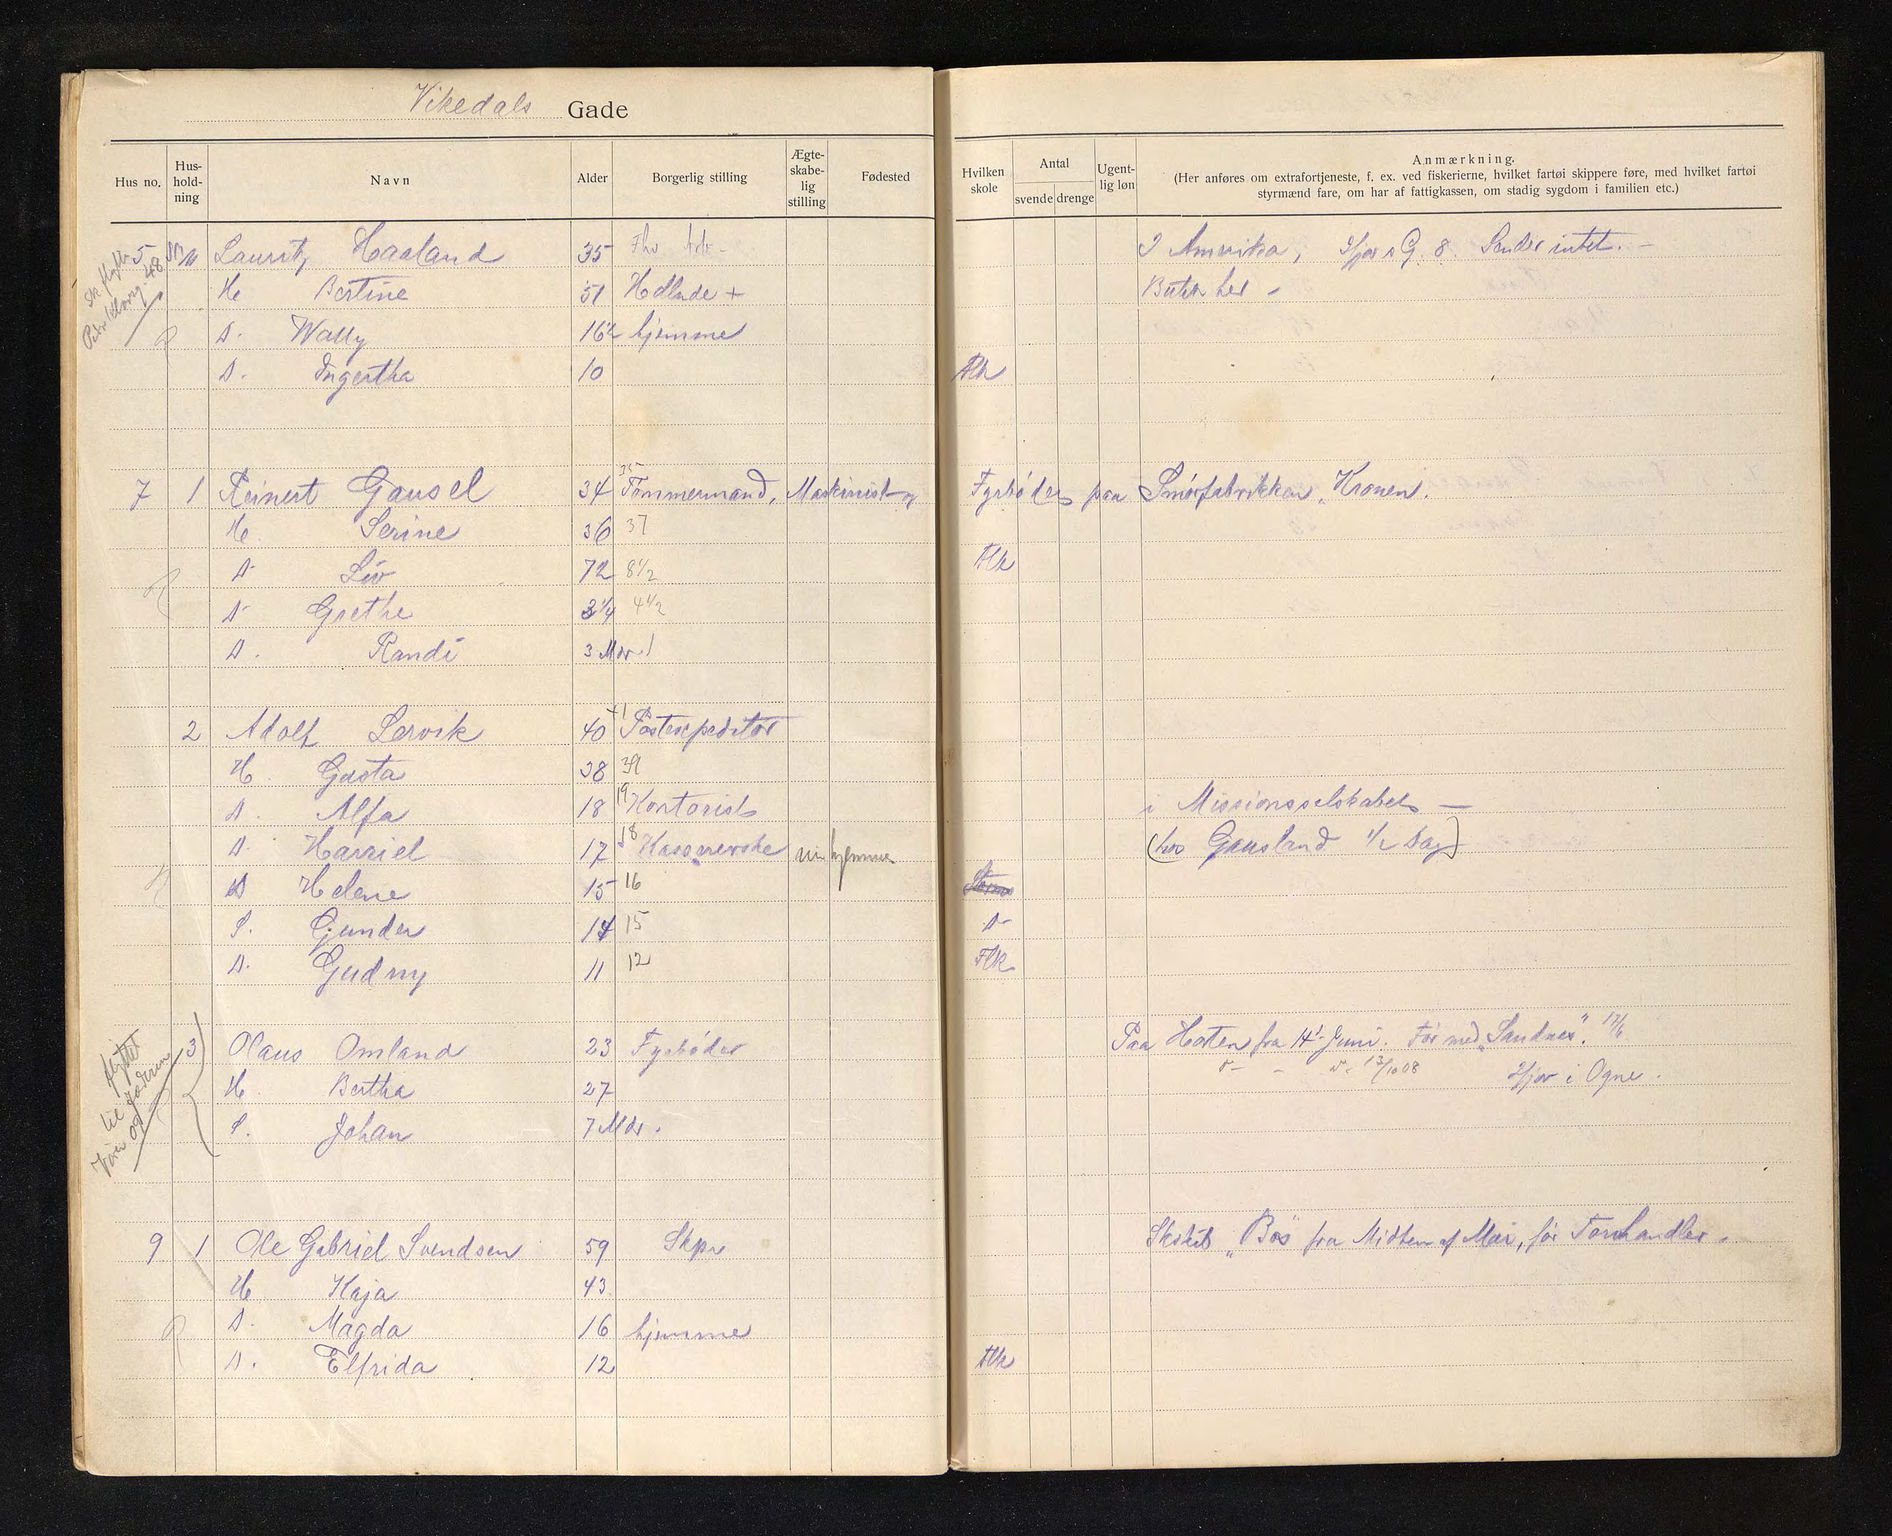 Vikedals Gade
Hus no. Hus-hold-ning Navn Alder Borgerlig stilling Ægte-skabe-lig stilling Fødested Hvilken skole Antal svende drenge Ugent-lig løn Anmærkning.
(Her anføres om extrafortjeneste, f. ex. ved fiskerierne, hvilket fartøi skippere føre, med hvilket fartøi
styrmænd fare, om har af fattigkassen, om stadig sygdom i familien etc.)
5 Lauritz Haaland 35 I Amerika, Hjor i G. 8. Sender intet. —
H Bertine 51 +
D. Wally 16 hjemme
D. Ingertha 10 Flk
7 1 Reinert Gausel 34 35 Tømmermand, Maskinist og Fyrbøder paa Smørfabrikken „Kronen.
H. Serine 36 37
D Liv 7½ 8½ Flk
D Grethe 3¼ 4½
D. Randi 3 Mdr.
2 Adolf Lervik 40 41 Postexpeditør
H. Gusta 38 39
D. Alfa 18 19 Kontorist i Missionsselskabet —
D. Harriet 17 18 Kassererske hjemme (hos Gausland ½ Dag)
D Helene 15 16
S. Gunder 14 15 D-
D. Gudny 11 12 Flk
flyttet til
3 Olaus Omland 23 Fyrbøder Paa Hoten fra 14' Juni. Før med „Sandnes".
H. Bertha 27 13/10 08 Hjor i Ogne.
S. Johan 7 Mdr.
9 1 Ole Gabriel Svendsen 59 Skpr Skibet „Bôs" fra Midten af Mai, før
H Haja 43
D. Magda 16 hjemme
D. Elfrida 12 Flk